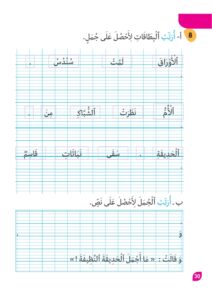 8
أ - أُرَتِّبُ ٱلْبِطَاقَاتِ لِأَحْصُلَ عَلَى جُمَلٍ.
ٱلْأَوْرَاقَ لَمَّتْ سُنْدُسُ .
ٱلْأُمُّ نَظَرَتْ ٱلشُّبَّاكِ مِنَ .
ٱلْحَدِيقَةِ . سَقَى نَبَاتَاتِ قَاسِمٌ
ب - أُرَتِّبُ ٱلْجُمَلَ لِأَحْصُلَ عَلَى نَصٍّ.
.
وَ
وَ قَالَتْ : « مَا أَجْمَلَ ٱلْحَدِيقَةَ ٱلنَّظِيفَةَ ! »
30